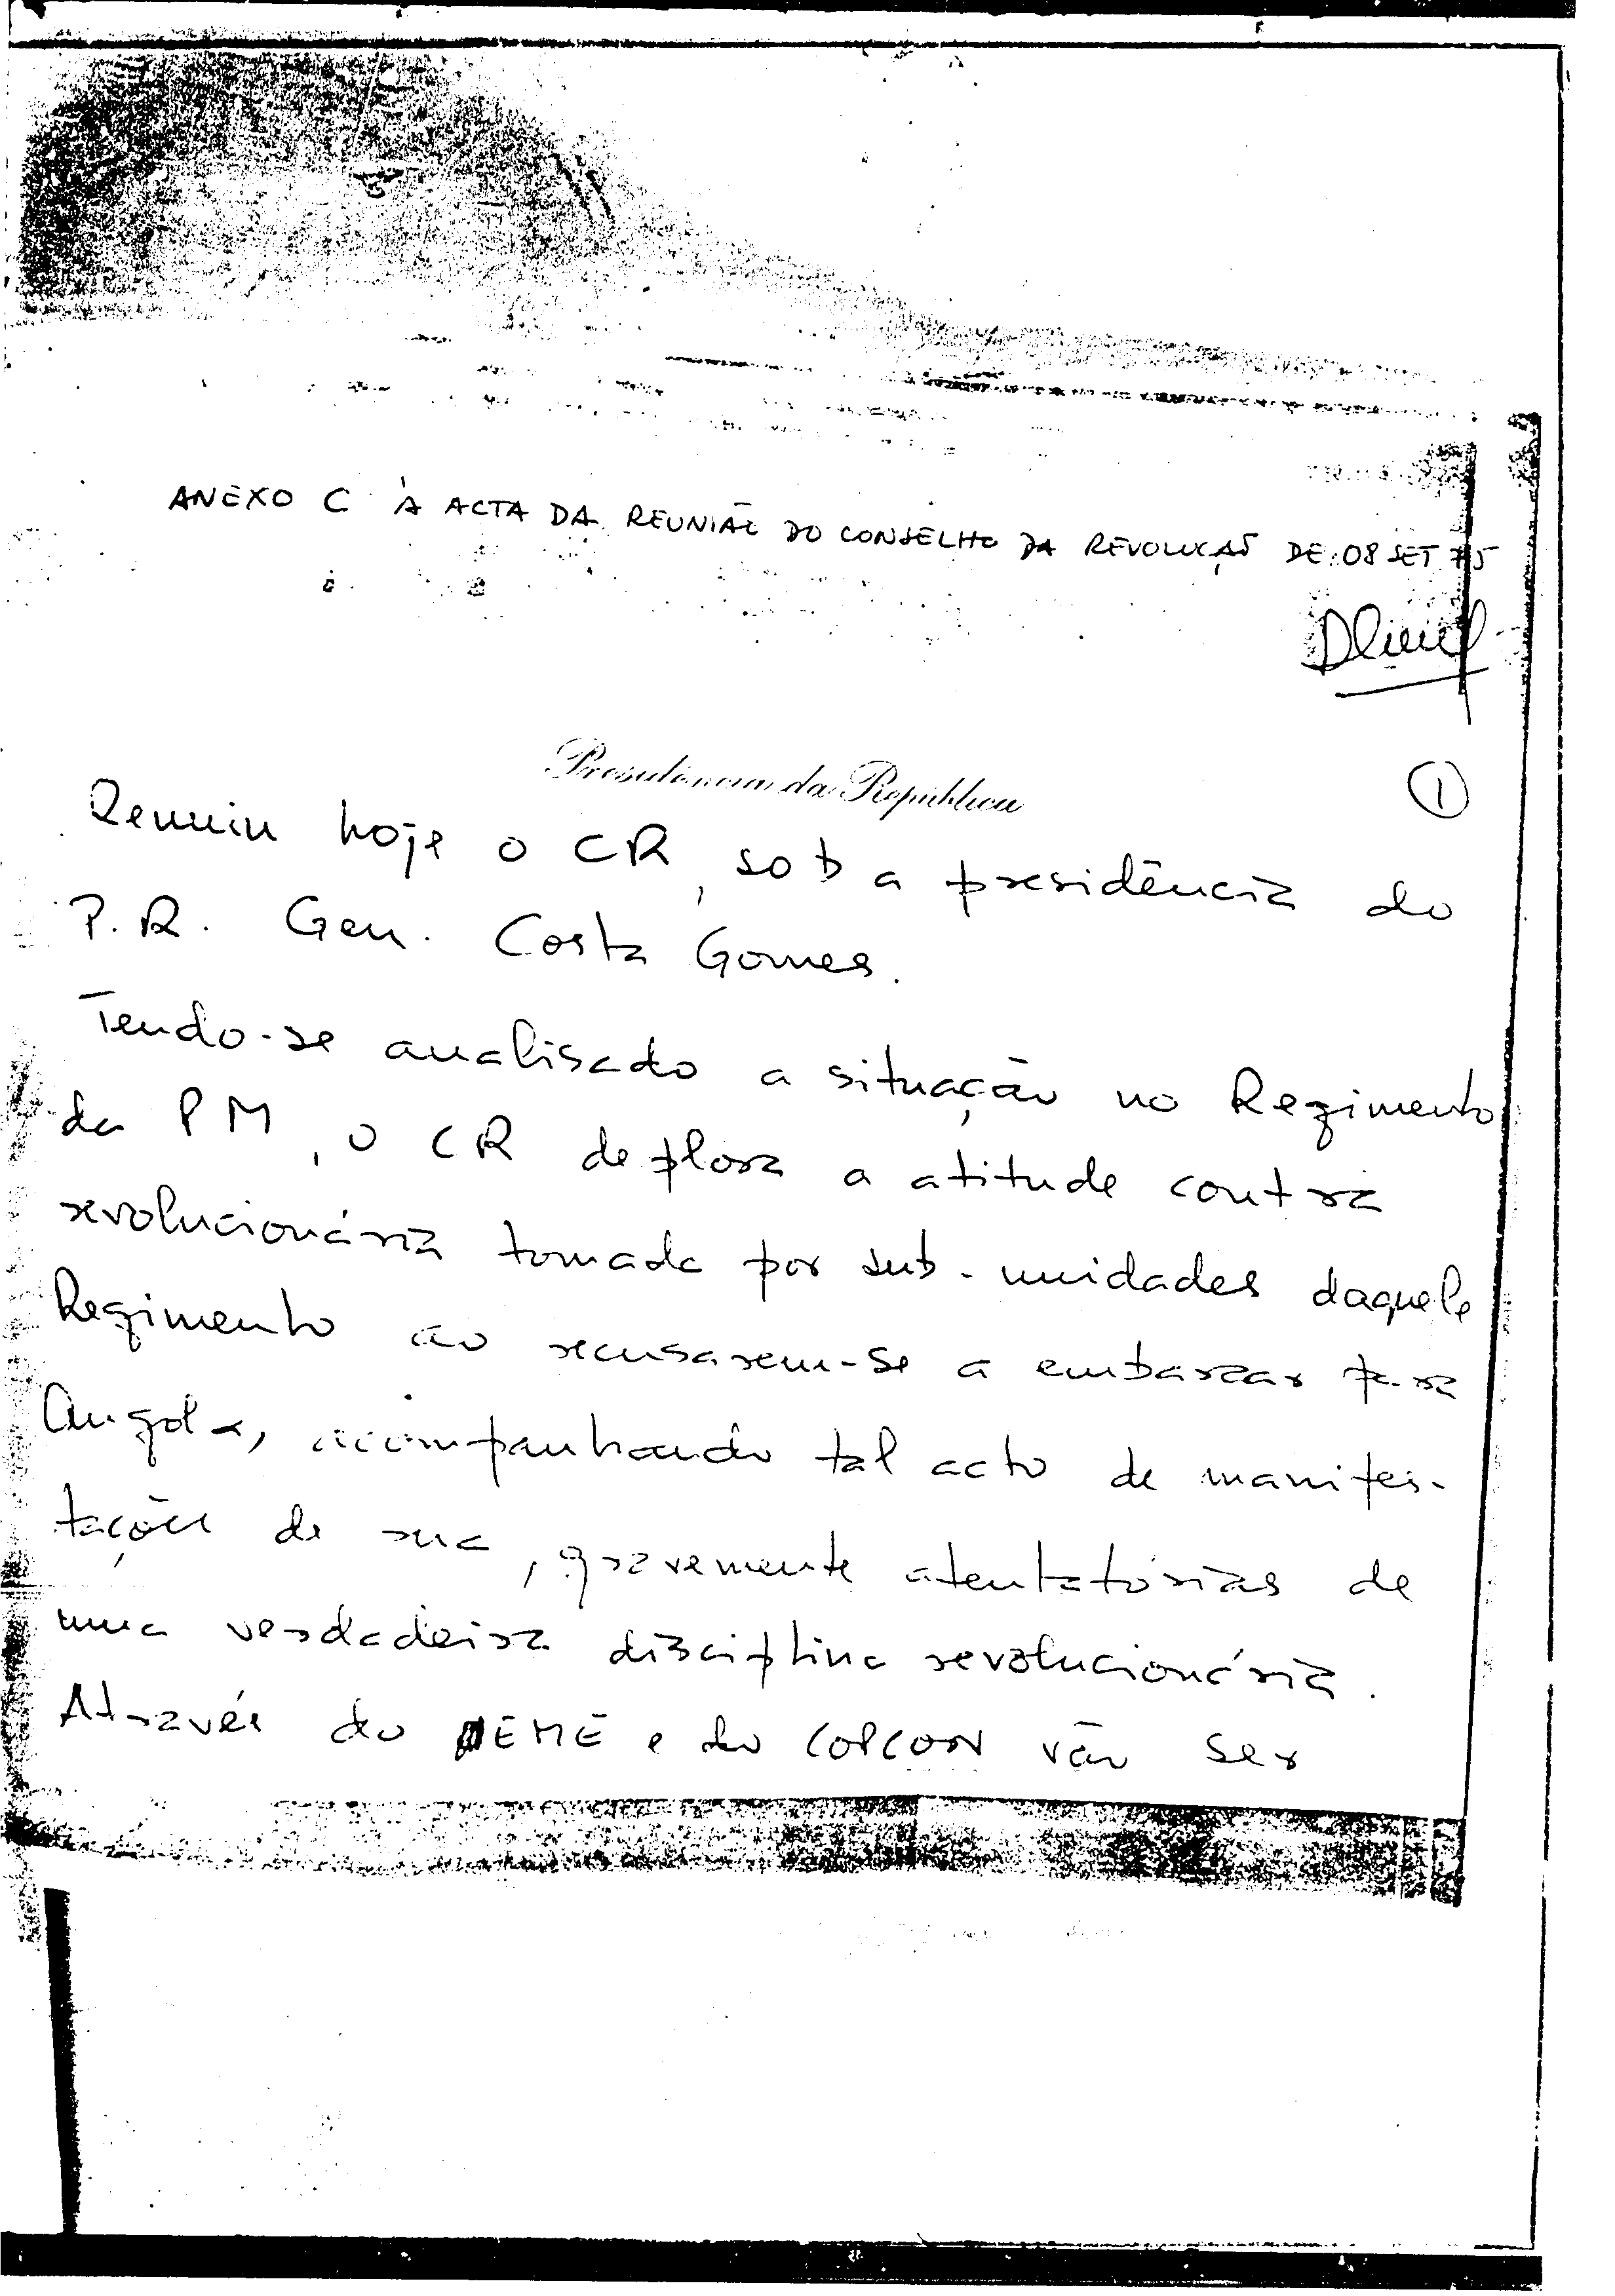 ANEXO C À ACTA DA REUNIÃO DO CONSELHO DA REVOLUÇÃO DE 08 SET 75
Presidência da República
1
Reuniu hoje o CR, sob a presidência do
P.R. Gen. Costa Gomes.
Tendo-se analisado a situação no Regimento
da PM, o CR deplora a atitude contra
revolucionária tomada por sub-unidades daquele
Regimento ao recusarem-se a embarcar para
Angola, acompanhando tal acto de manifes-
tações de rua, gravemente atentatórias de
uma verdadeira disciplina revolucionária.
Através do EME e do COPCON vão ser